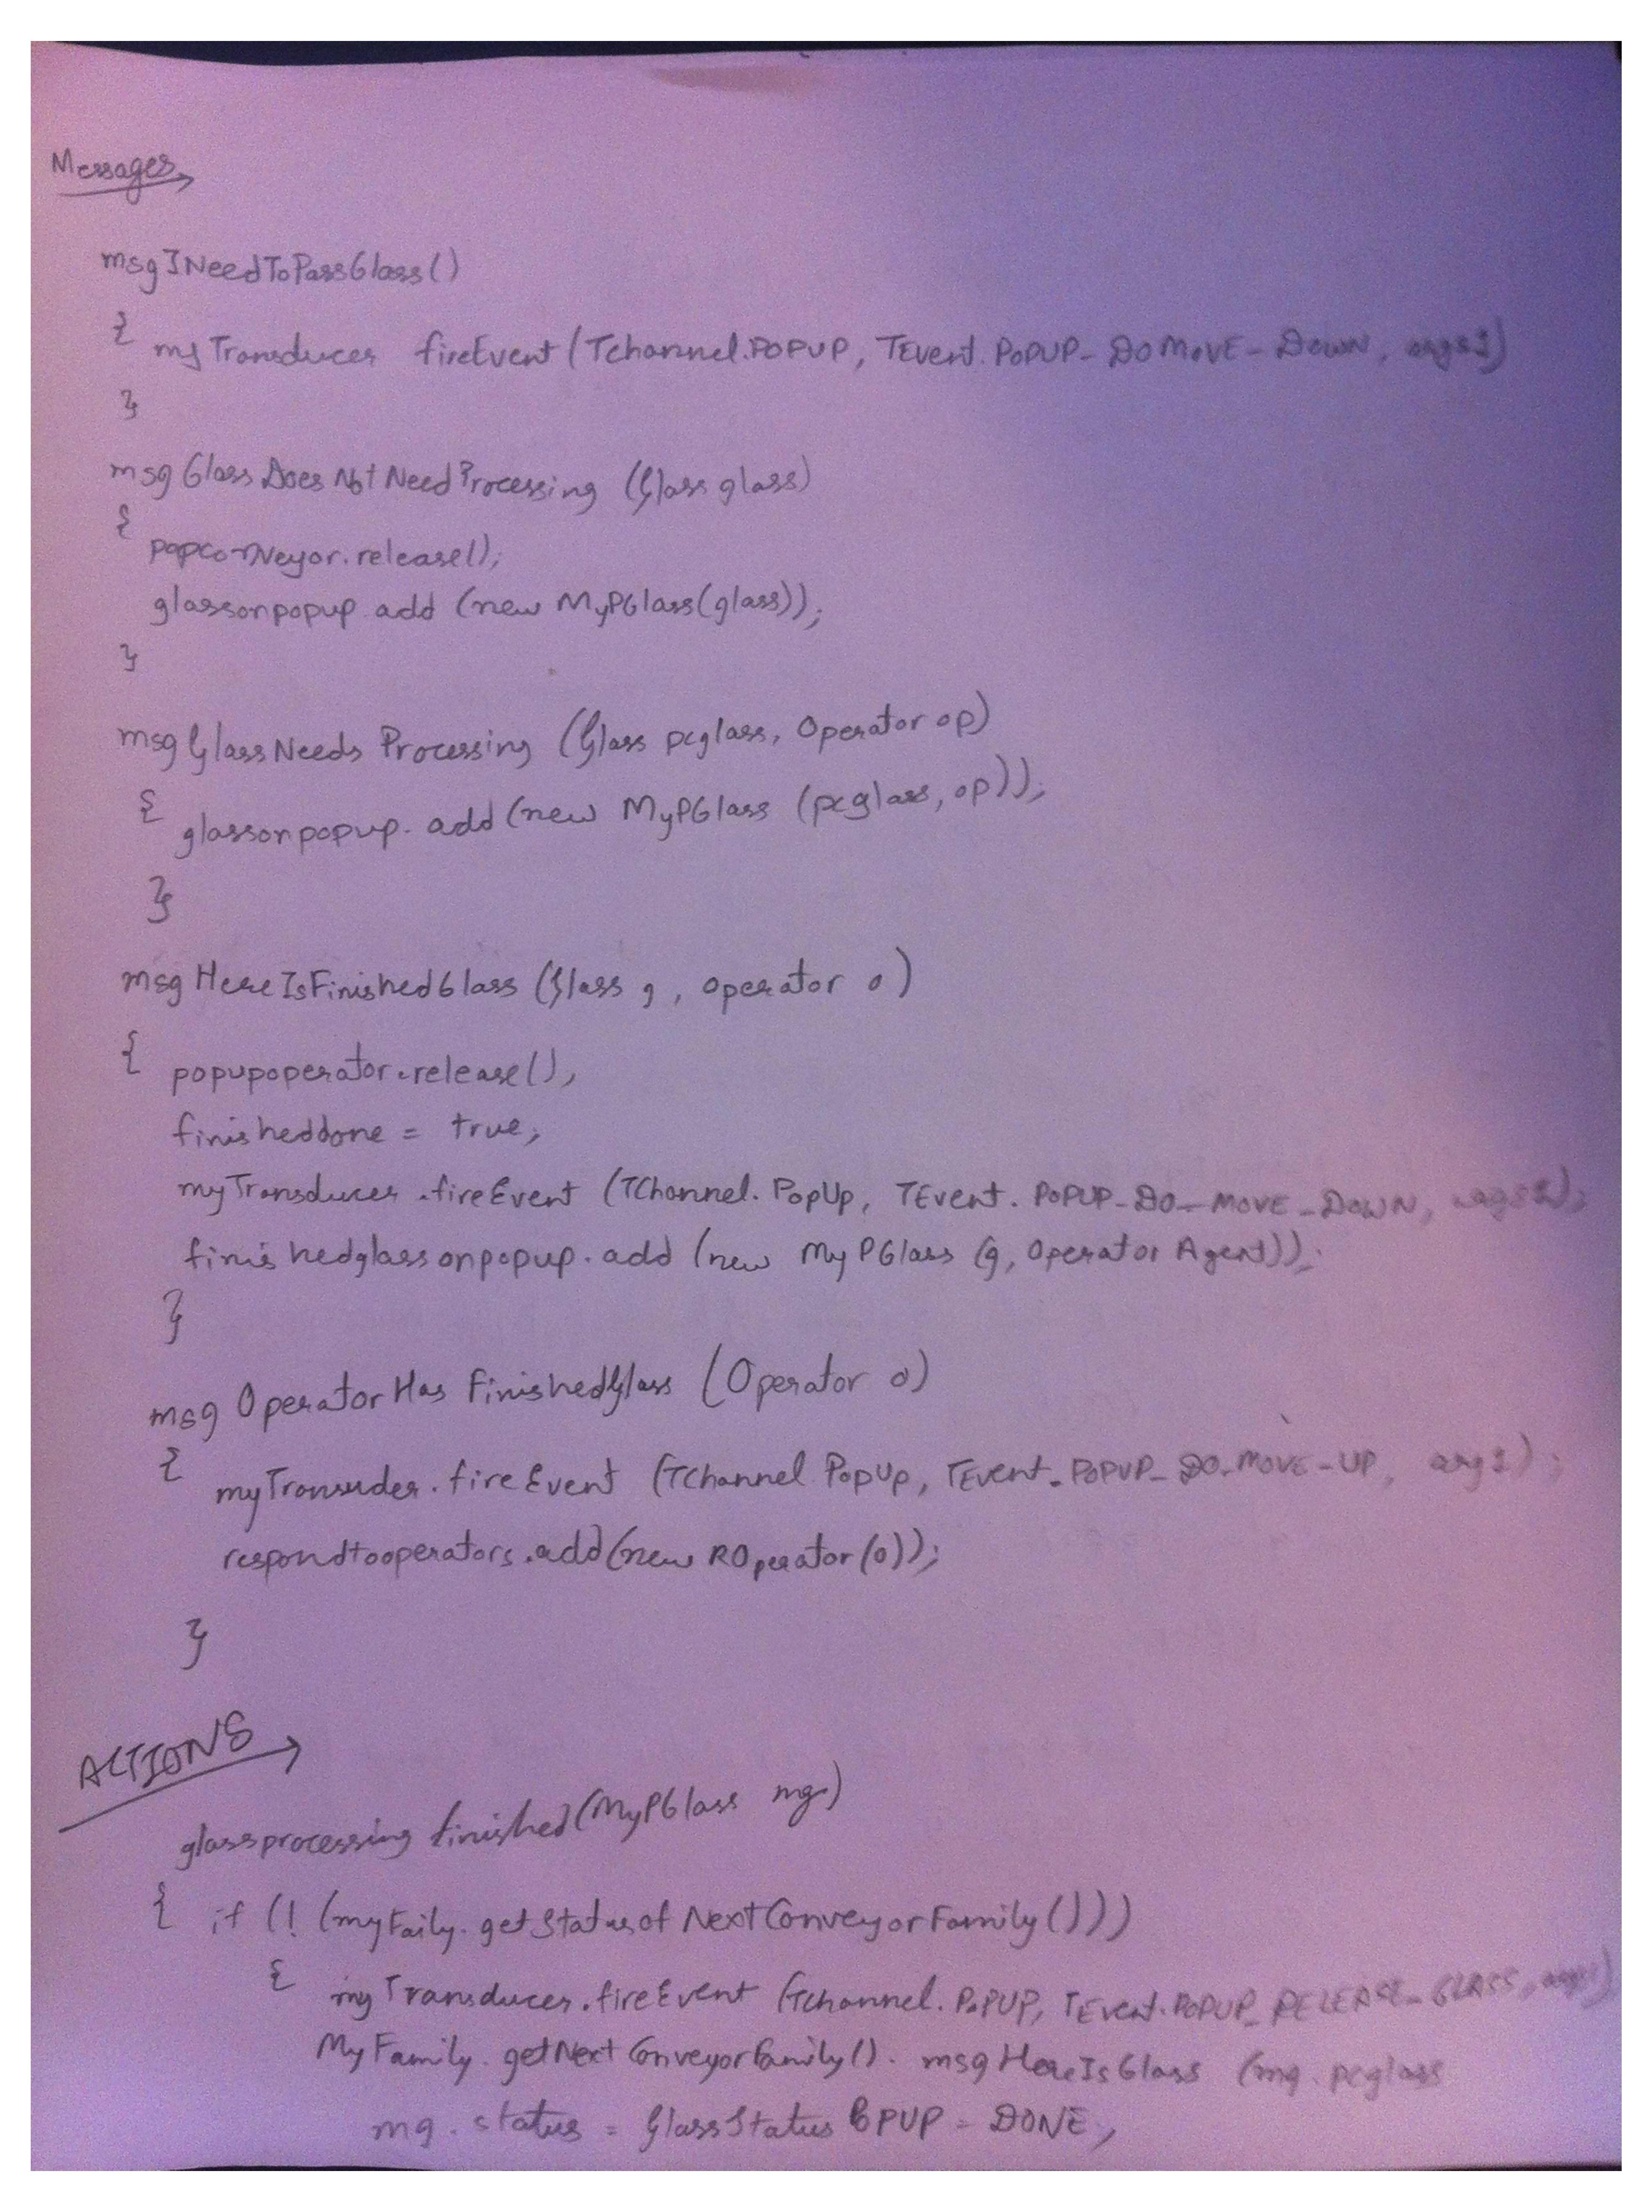 Messages
msgINeedToPassGlass()
{ myTransducer fireEvent(TChannel.POPUP, TEvent.POPUP_DOMOVE_DOWN, args1)
}
msgGlassDoesNotNeedProcessing (Glass glass)
{ popconveyor.release();
glassonpopup.add (new MyPGlass(glass));
}
msgGlassNeeds Processing (Glass pcglass, Operator op)
{ glassonpopup.add(new MyPGlass (pcglass, op));
}
msgHereIsFinishedGlass (Glass g, operator o)
{ popupoperator.release();
finisheddone = true;
myTransducer.fireEvent (TChannel.PopUp, TEvent.POPUP_DO_MOVE_DOWN,
finishedglassonpopup.add (new MyPGlass (g, Operator Agent));
}
msg OperatorHasFinishedGlass (Operator o)
{ myTransuder.fireEvent (TChannel PopUp, TEvent.POPUP_DO_MOVE_UP, args1);
respondtooperators.add(new ROperator(o));
}
ACTIONS
glassprocessing finished(MyPGlass mg)
{ if (! (myFaily.getStatusof NextConveyorFamily()))
{ myTransducer.fireEvent (TChannel.POPUP, TEvent.POPUP_RELEASE_GLASS,
MyFamily.getNextConveyorFamily().msgHereIsGlass (mg.pcglass
mg.status = GlassStatus PUP = DONE;